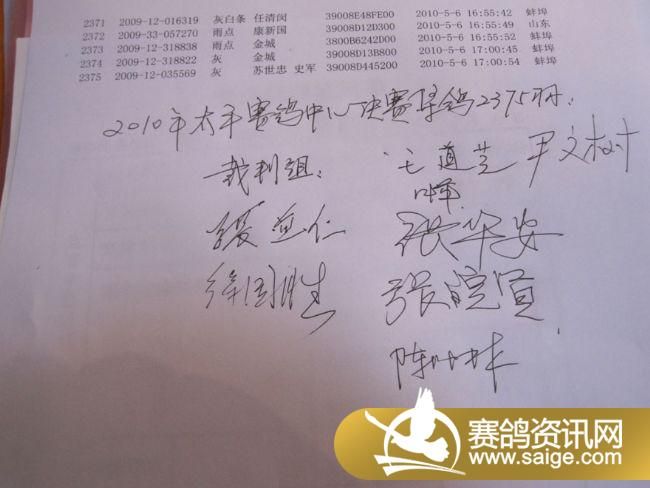 2371 2009-12-016319 灰白条 任清闵 39008E48FE00 2010-5-6 16:55:42 蚌埠
2372 2009-33-057270 雨点 康新国 39008D12D300 2010-5-6 16:55:49 山东
2373 2009-12-318838 雨点 金城 3800B6242D00 2010-5-6 16:55:52 蚌埠
2374 2009-12-318822 灰 金城 39008D13B800 2010-5-6 17:00:45 蚌埠
2375 2009-12-035569 灰 苏世忠 史军 39008D445200 2010-5-6 17:00:54 蚌埠
2010年太平赛鸽中心决赛集鸽2375羽.
裁判组: 道芝 尹文树
张 仁 张华安
徐国胜 张 
陈 林
赛鸽资讯网
www.saige.com